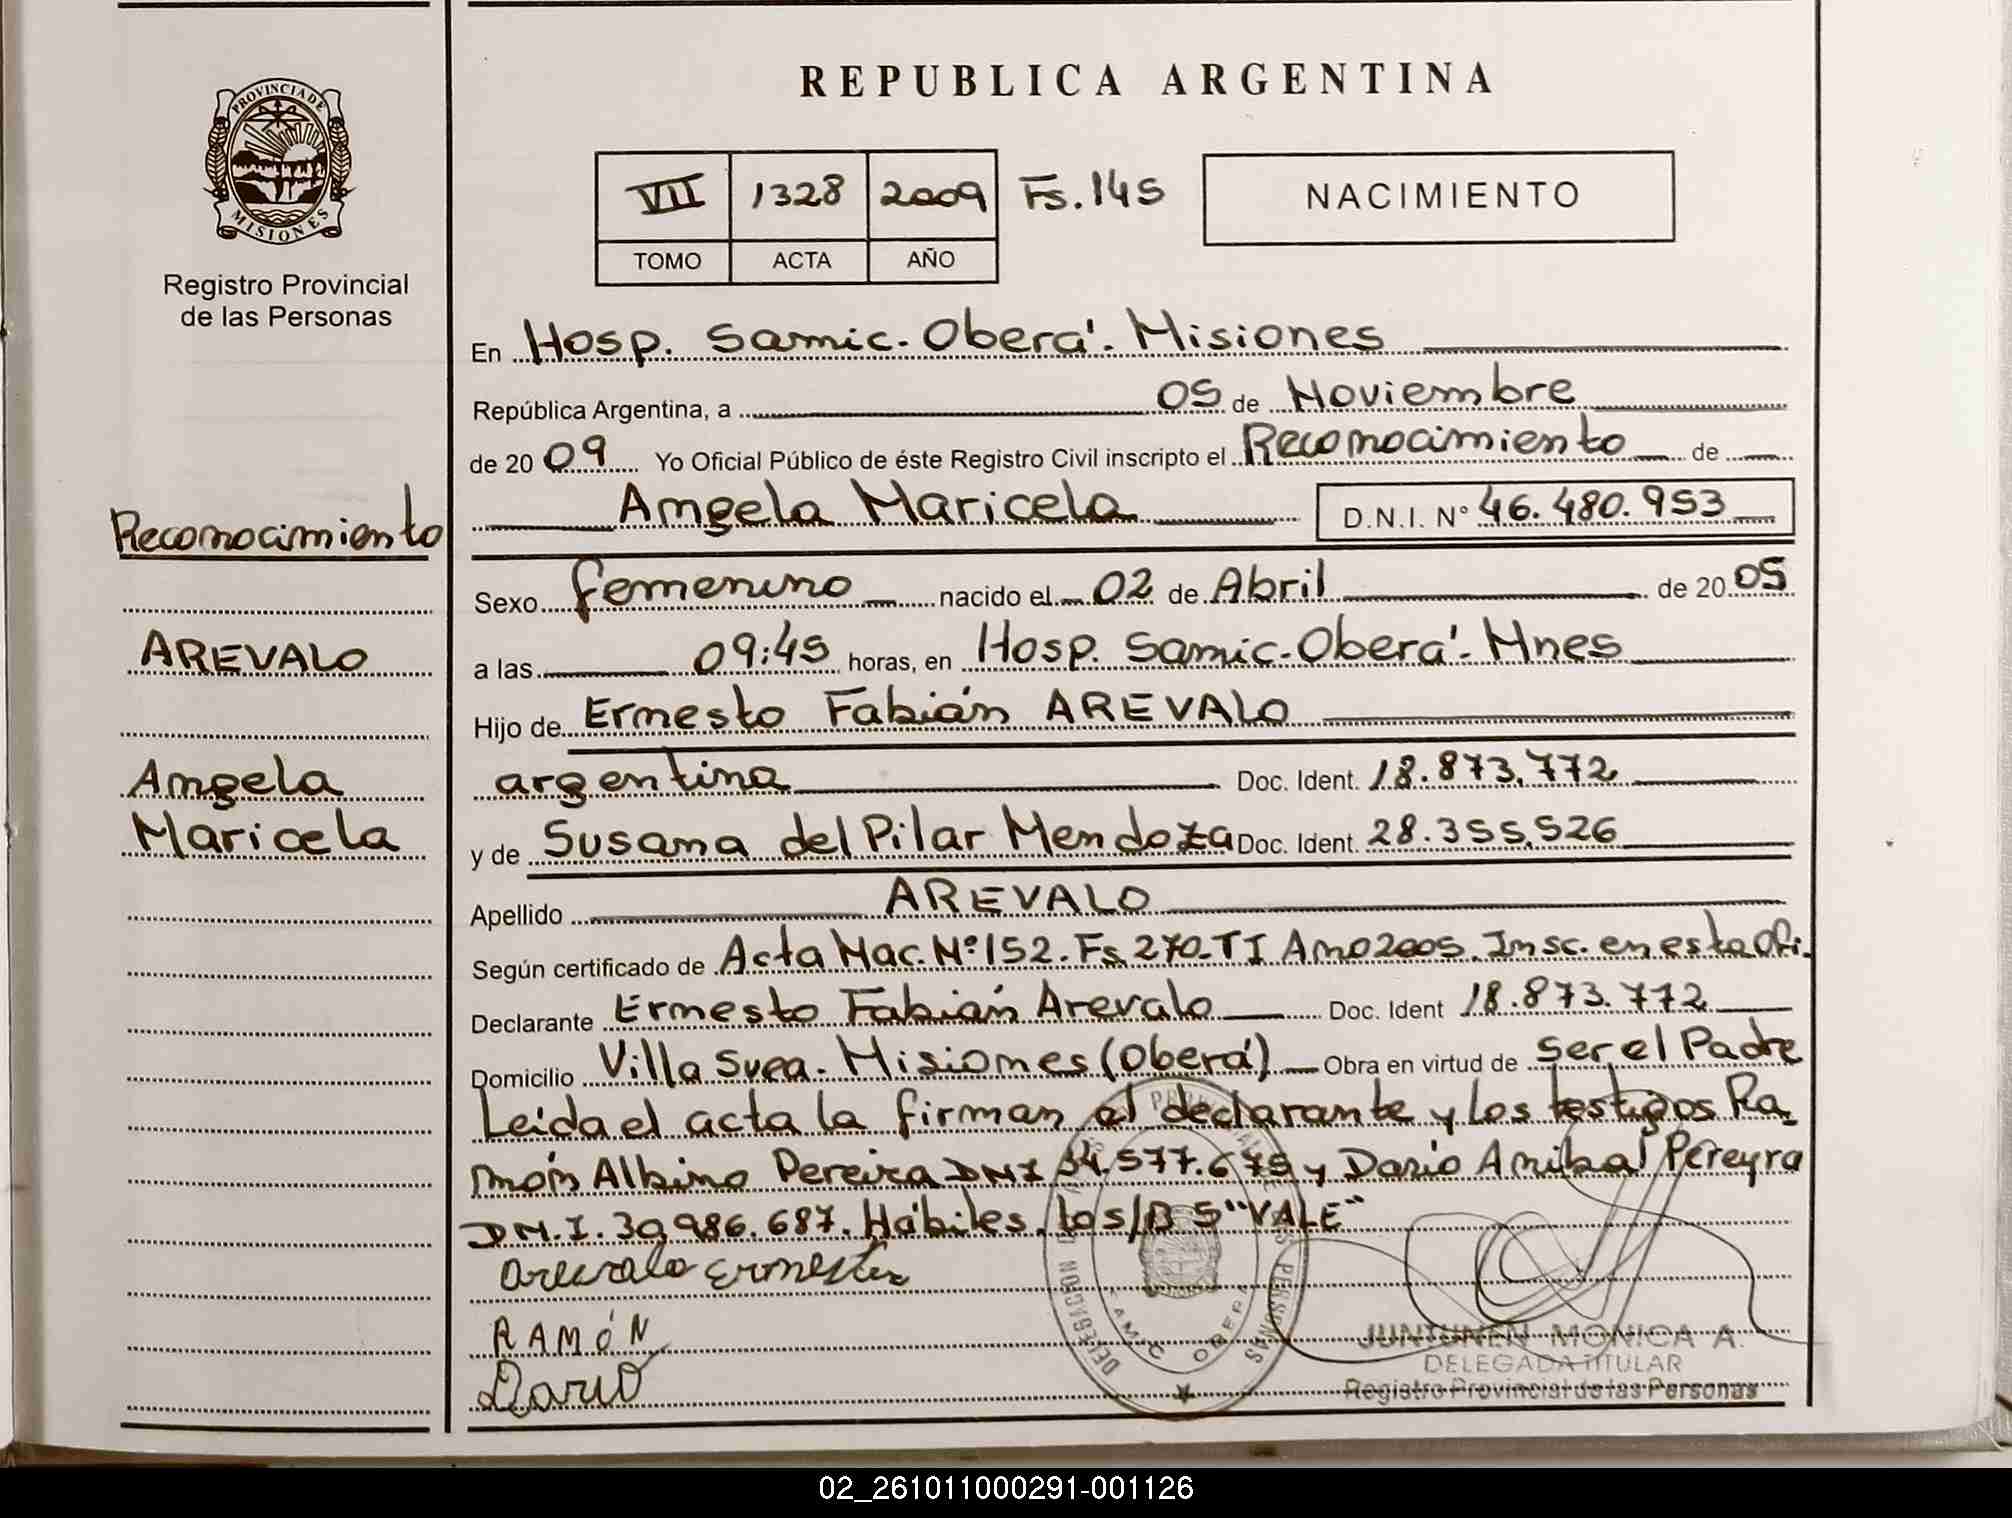 REPUBLICA ARGENTINA
PROVINCIA DE
MISIONES
Registro Provincial
de las Personas
VII 1328 2009 Fs. 145
TOMO ACTA AÑO
NACIMIENTO
En Hosp. Samic. Oberá. Misiones
República Argentina, a 05 de Noviembre
de 20 09 Yo Oficial Público de éste Registro Civil inscripto el Reconocimiento de
Angela Maricela D.N.I. N° 46.480.953
Reconocimiento
Sexo femenino nacido el 02 de Abril de 20 05
AREVALO
a las 09:45 horas, en Hosp. Samic. Oberá. Mnes
Hijo de Ernesto Fabián AREVALO
Angela
Maricela
argentina Doc. Ident. 18.873.772
y de Susana del Pilar Mendoza Doc. Ident. 28.355.526
Apellido AREVALO
Según certificado de Acta Nac. Nº 152. Fs 270-TI Ano 2005. Insc. en esta Ofi.
Declarante Ernesto Fabián Arevalo Doc. Ident 18.873.772
Domicilio Villa Svea. Misiones (Oberá) Obra en virtud de ser el Padre
Leida el acta la firman el declarante y los testigos Ra
món Albino Pereira DNI 34.577.675 y Dario Anibal Pereyra
D.N.I. 39.986.687. Hábiles. "VALE"
Arevalo Ernesto
RAMÓN
Dario
DELEGACION PERSONAS
SAMIC OBERA
JUNTUNEN MONICA A.
DELEGADA TITULAR
Registro Provincial de las Personas
02_261011000291-001126